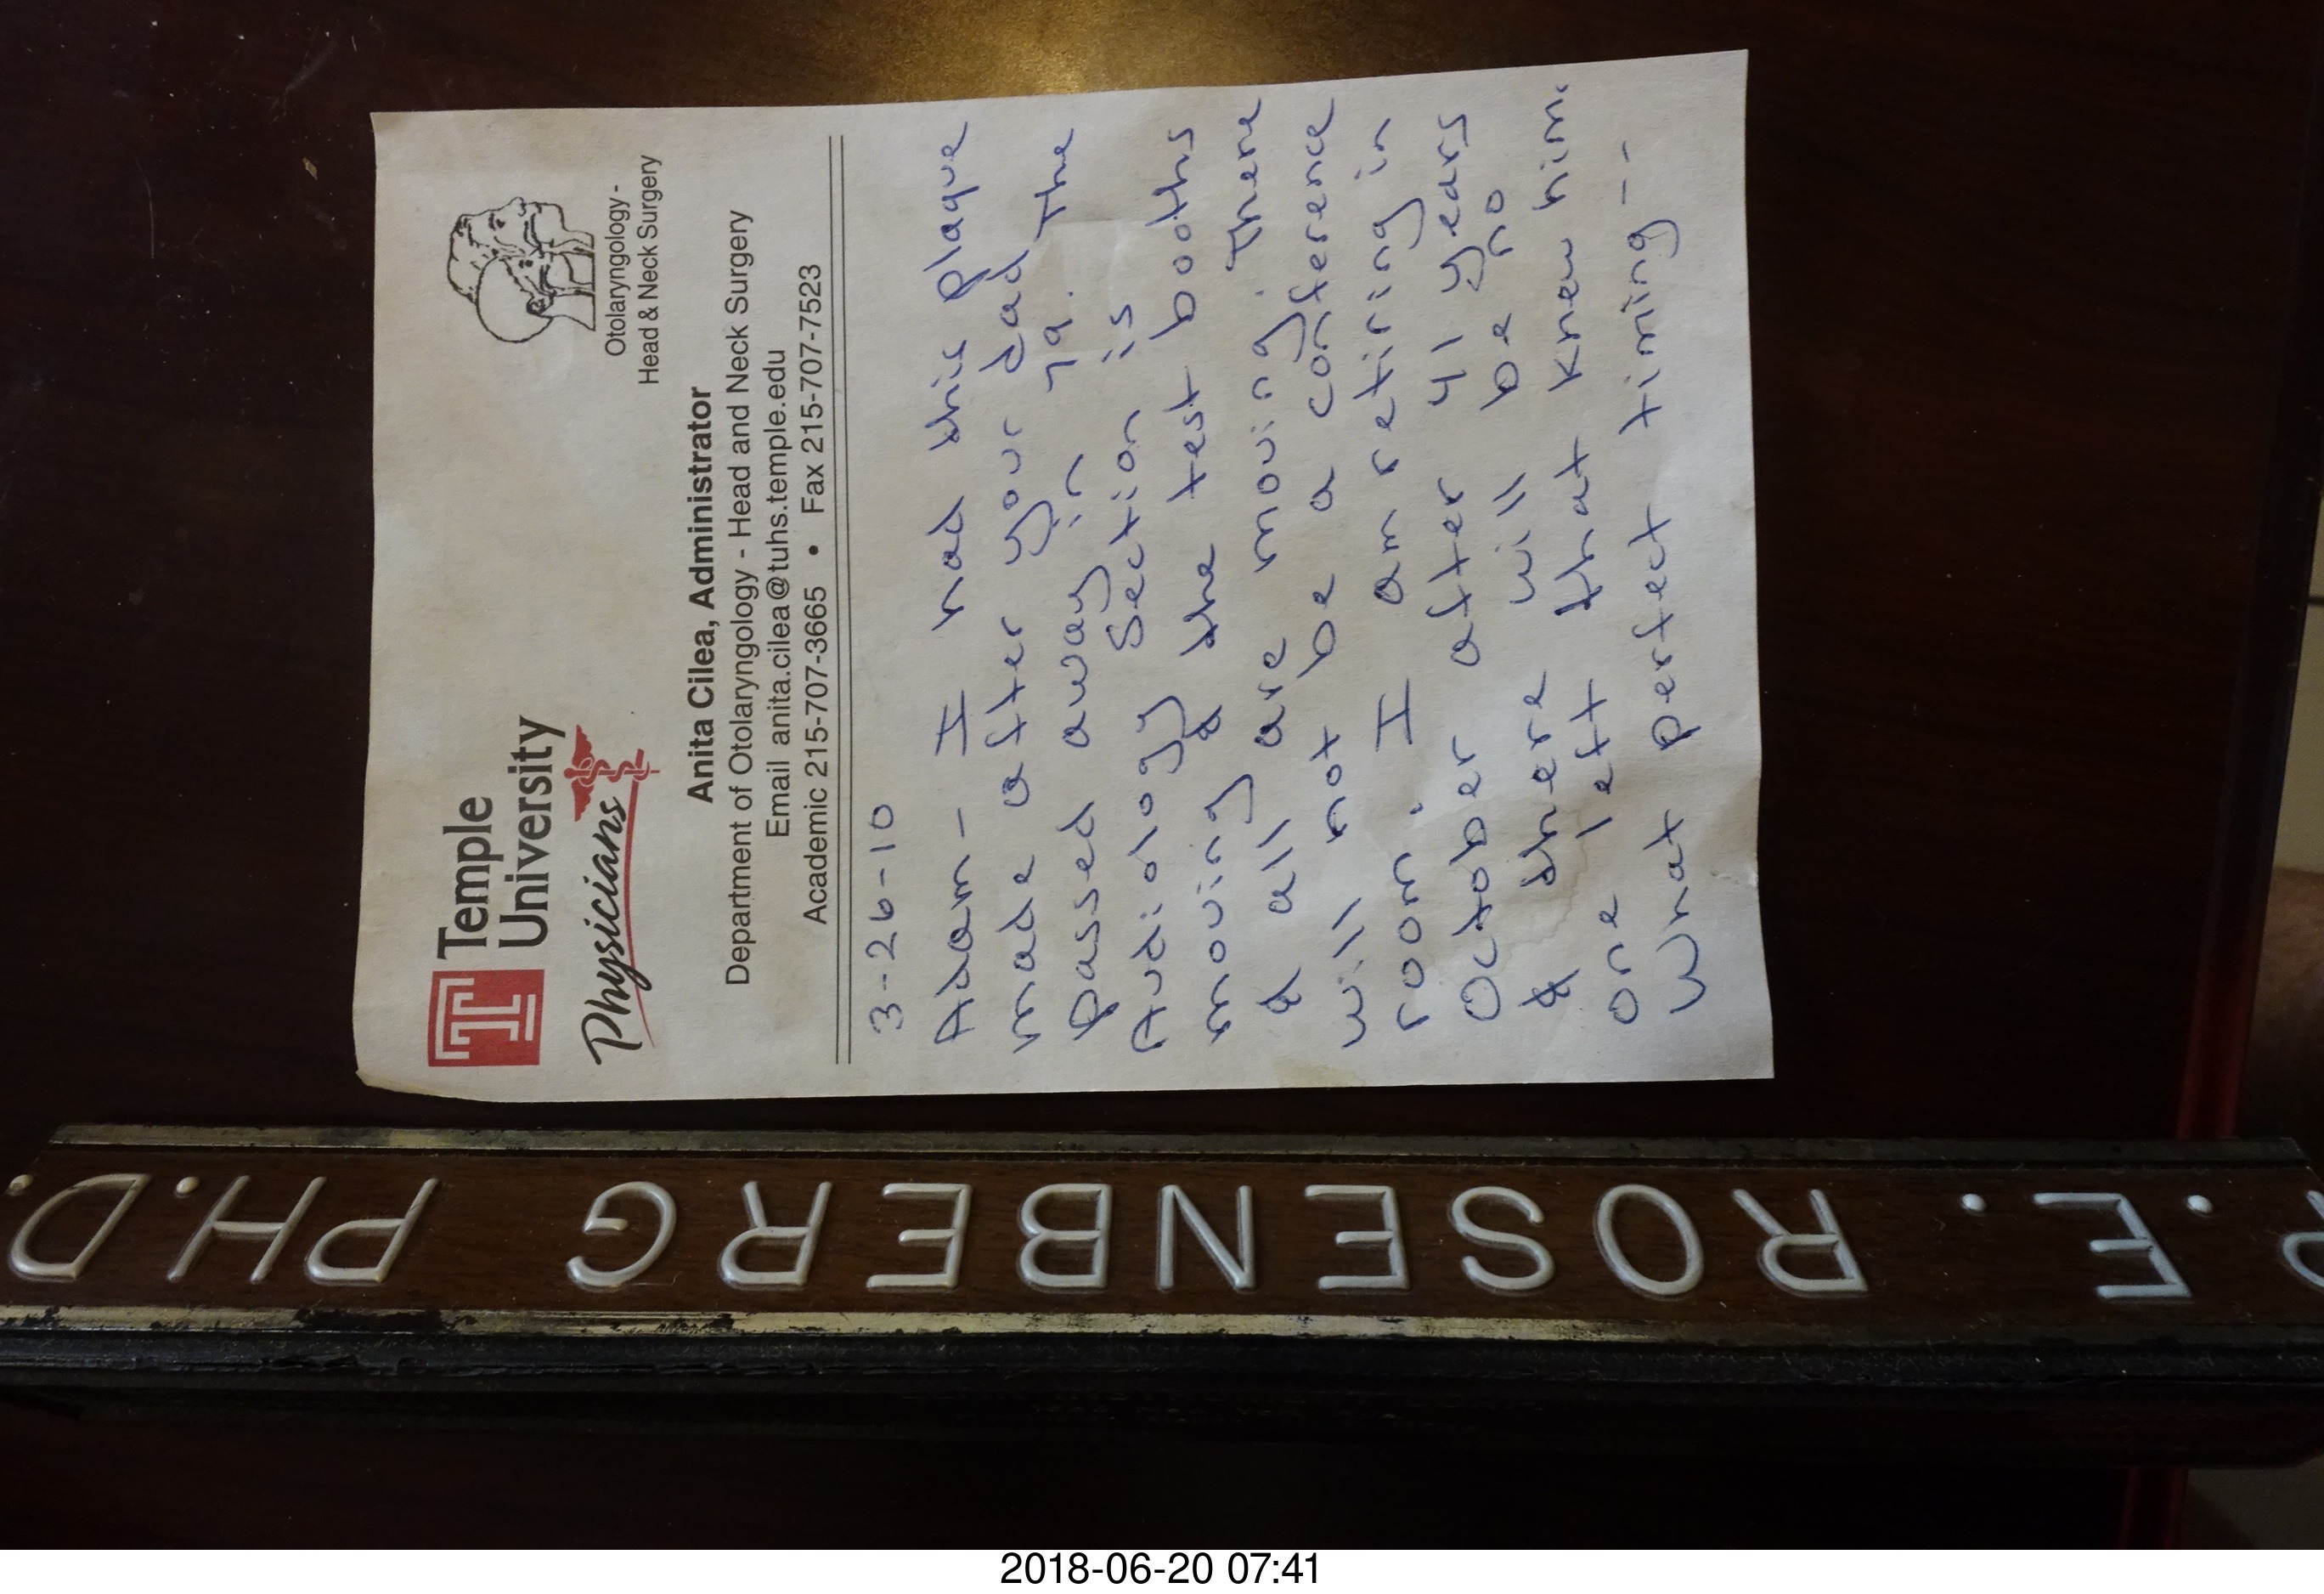 Temple
University
Physicians
Otolaryngology -
Head & Neck Surgery
Anita Cilea, Administrator
Department of Otolaryngology - Head and Neck Surgery
Email anita.cilea@tuhs.temple.edu
Academic 215-707-3665 • Fax 215-707-7523
3-26-10
Adam - I had this plaque
made after your dad
passed away in 79. The
Audiology Section is
moving & the test booths
& all are moving. There
will not be a conference
room. I am retiring in
October after 41 years
& there will be no
one left that knew him.
What perfect timing --
P. E. ROSENBERG PH.D.
2018-06-20 07:41